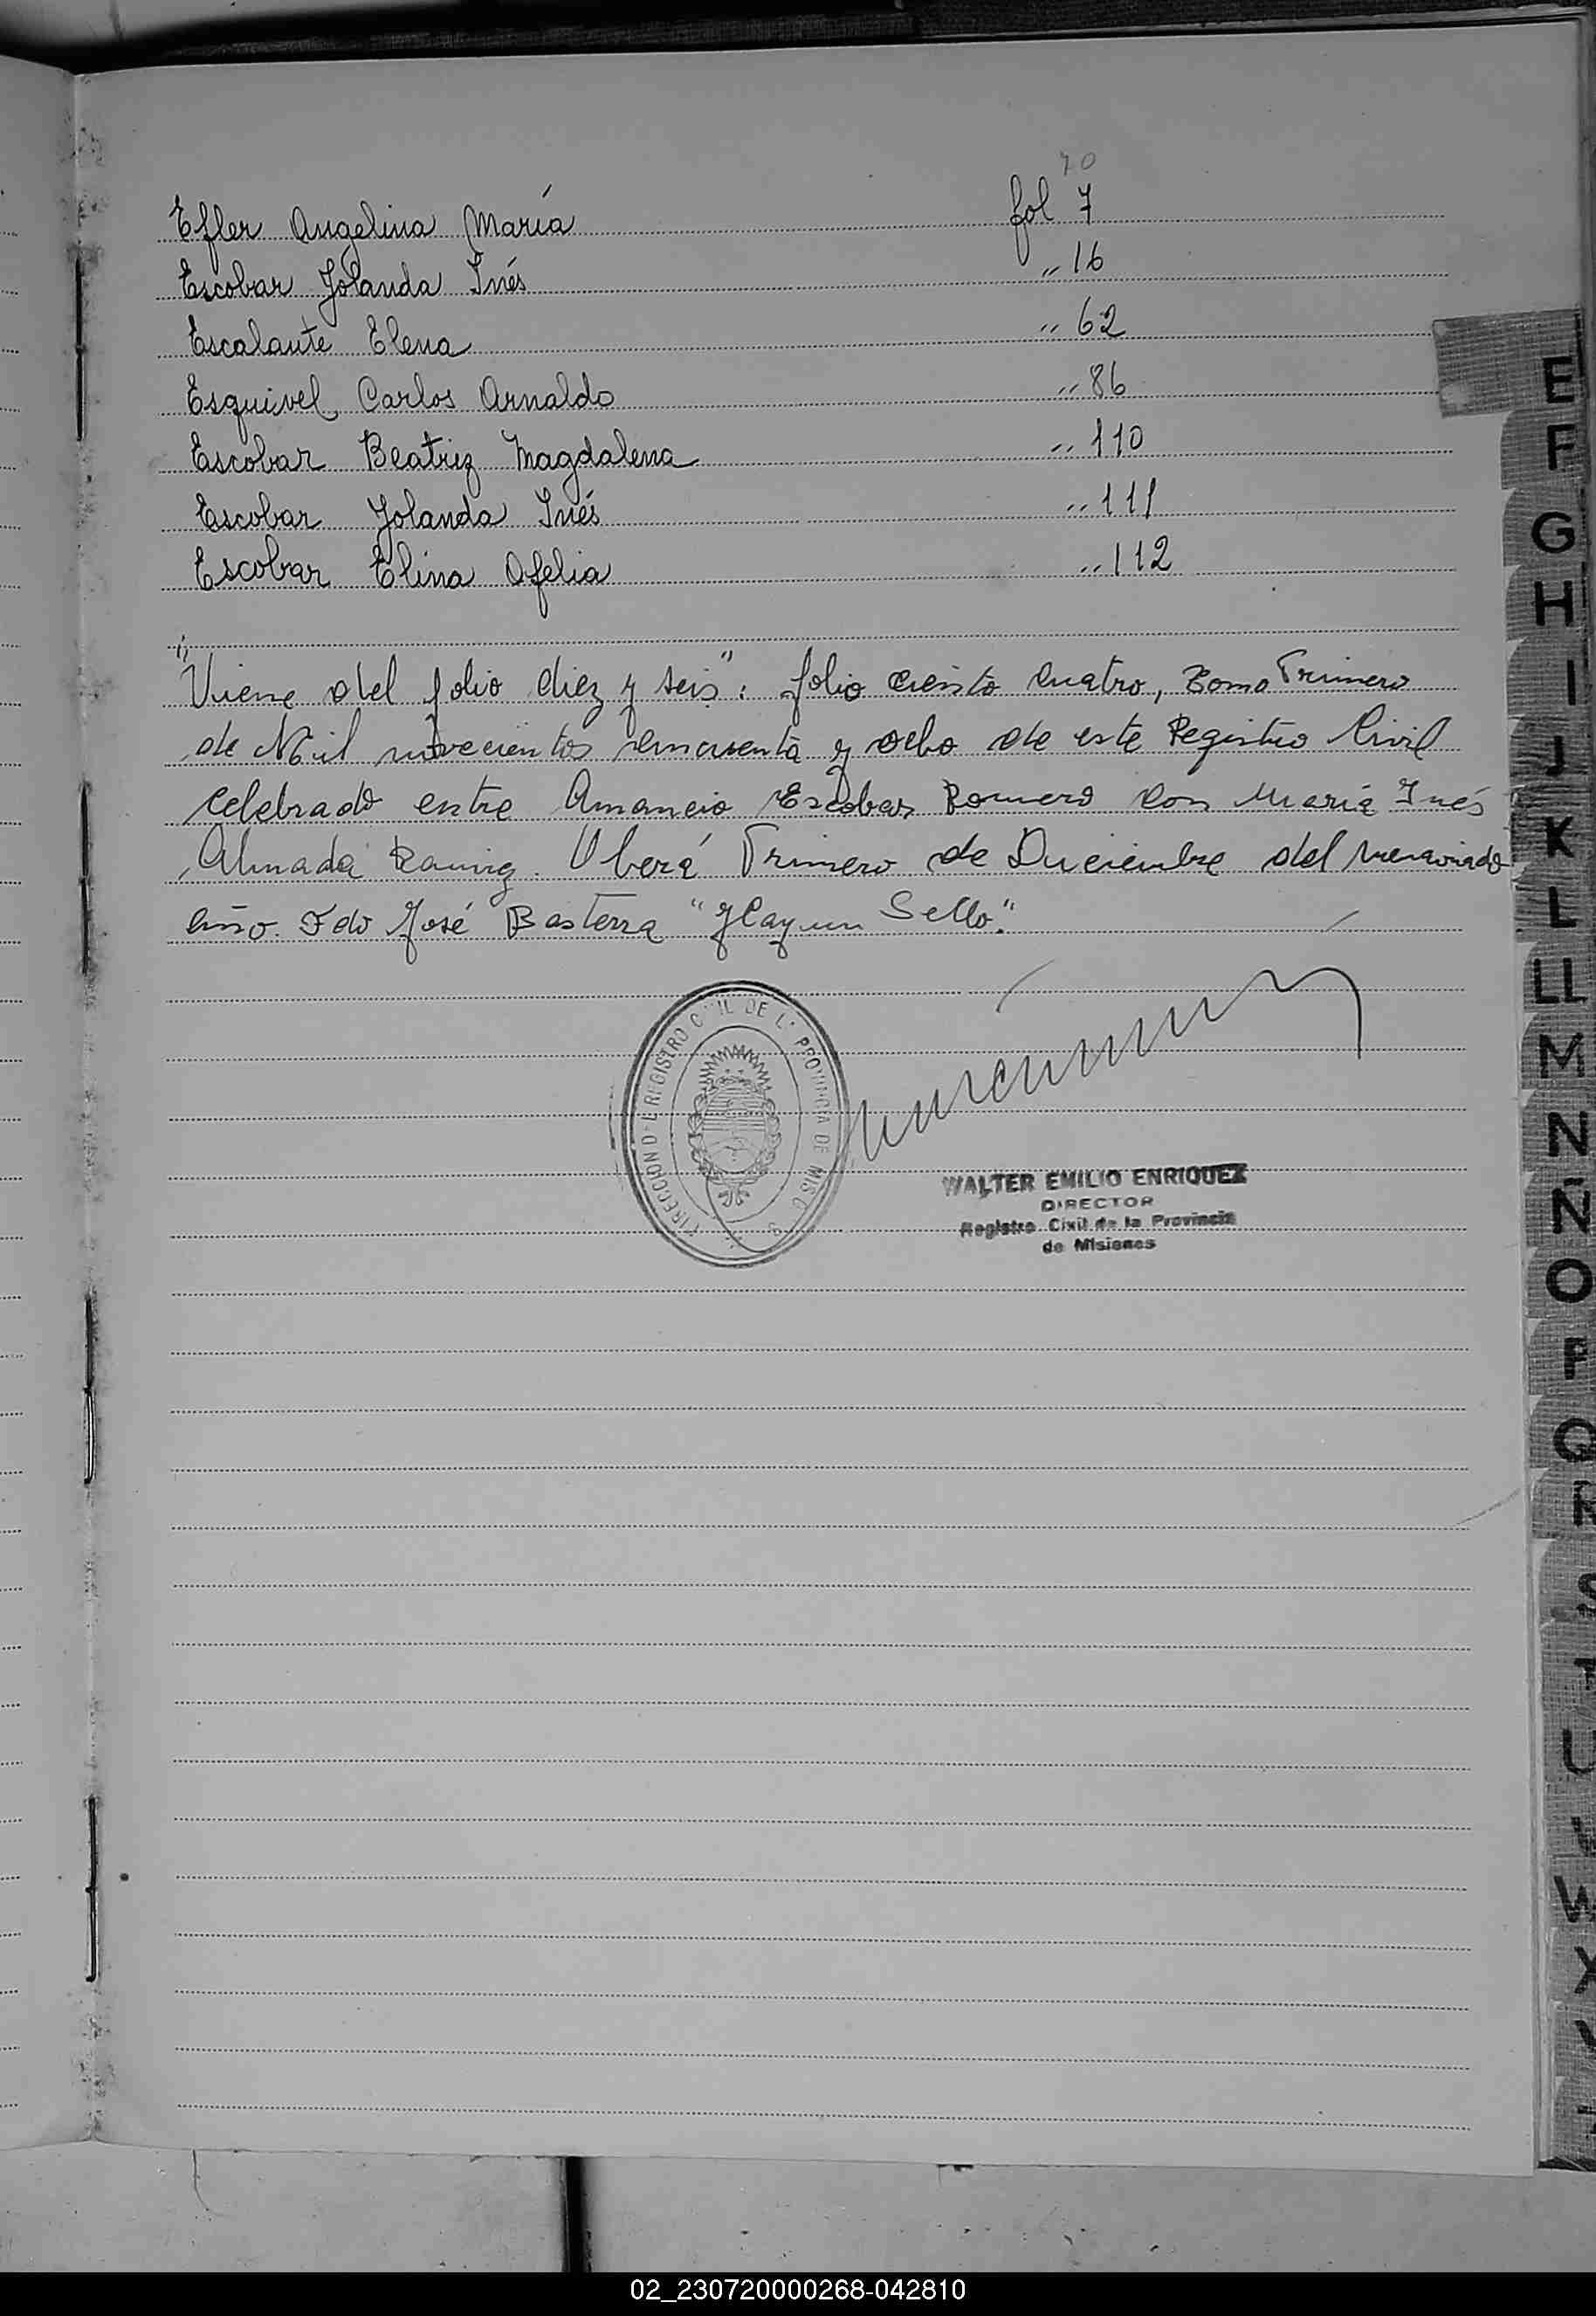 70
Efler Angelina María fol 7
Escobar Yolanda Inés " 16
Escalante Elena " 62
Esquivel, Carlos Arnaldo " 86
Escobar Beatriz Magdalena " 110
Escobar Yolanda Inés " 111
Escobar Elina Ofelia " 112
"Viene del folio diez y seis": folio ciento cuatro, Tomo Primero
de Mil novecientos cincuenta y ocho de este Registro Civil
celebrado entre Amancio Escobar Romero con María Inés
Almada. Oberá Primero de Diciembre del mencionado
año. Fdo José Basterra "Hay un Sello."
DIRECCION DE REGISTRO CIVIL DE LA PROVINCIA DE MISIONES
WALTER EMILIO ENRIQUEZ
DIRECTOR
Registro Civil de la Provincia
de Misiones
E
F
G
H
I
J
K
L
LL
M
N
Ñ
O
P
Q
R
S
T
U
V
W
X
02_230720000268-042810